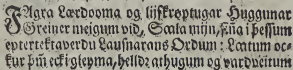 FAgra Lærdooma og lijfkrøptugar Huggunar
Greiner meigum vid, Sæla mijn, fꜳ i þessum
eptertektaverdu Lausnarans Ordum: Lætum oc-
kur þm̄ ecki glepma, helldr athugum og vardveitum